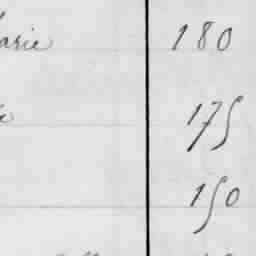 arie 180
175
150